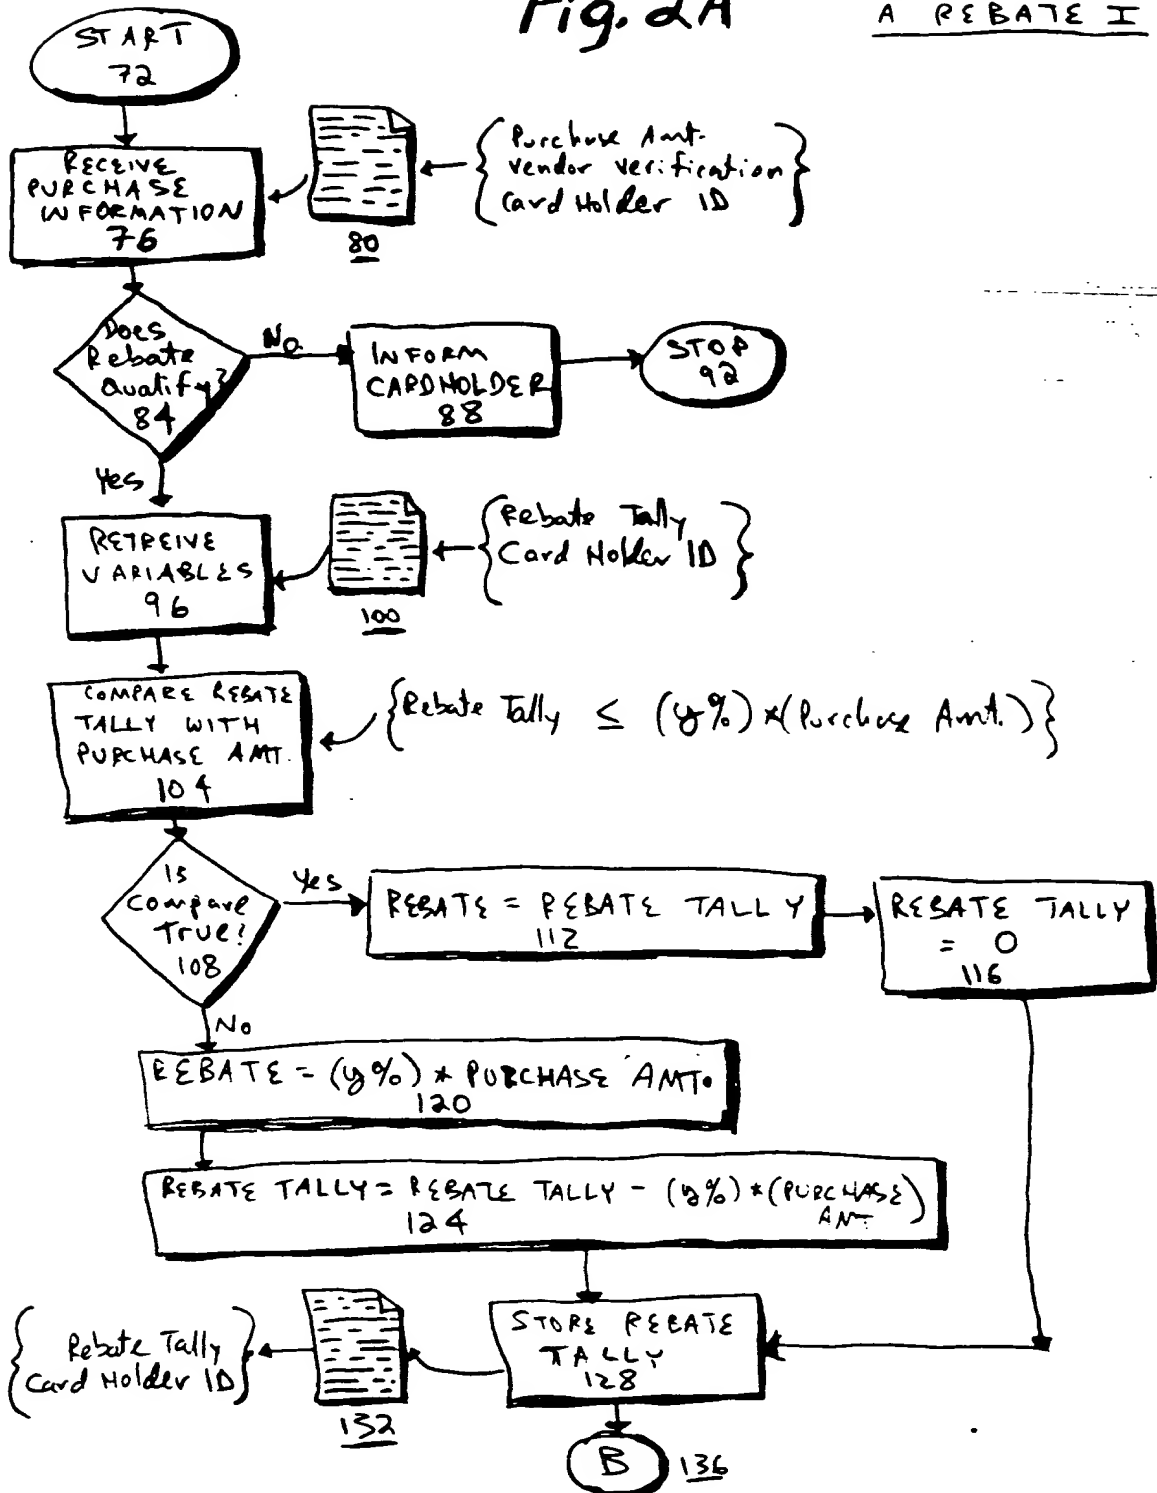 Fig. 2A
A REBATE I
START
72
RECEIVE
PURCHASE
INFORMATION
76
80
Purchase Amt.
vendor verification
Card Holder ID
Does
Rebate
Qualify?
84
No
INFORM
CARDHOLDER
88
STOP
92
Yes
RETREIVE
VARIABLES
96
100
Rebate Tally
Card Holder ID
COMPARE REBATE
TALLY WITH
PURCHASE AMT.
104
{Rebate Tally ≤ (y%) *(Purchase Amt.)}
Is
Compare
True?
108
Yes
REBATE = REBATE TALLY
112
REBATE TALLY
= 0
116
No
REBATE = (y%) * PURCHASE AMT.
120
REBATE TALLY = REBATE TALLY - (y%) * (PURCHASE
AMT)
124
STORE REBATE
TALLY
128
Rebate Tally
Card Holder ID
132
B
136